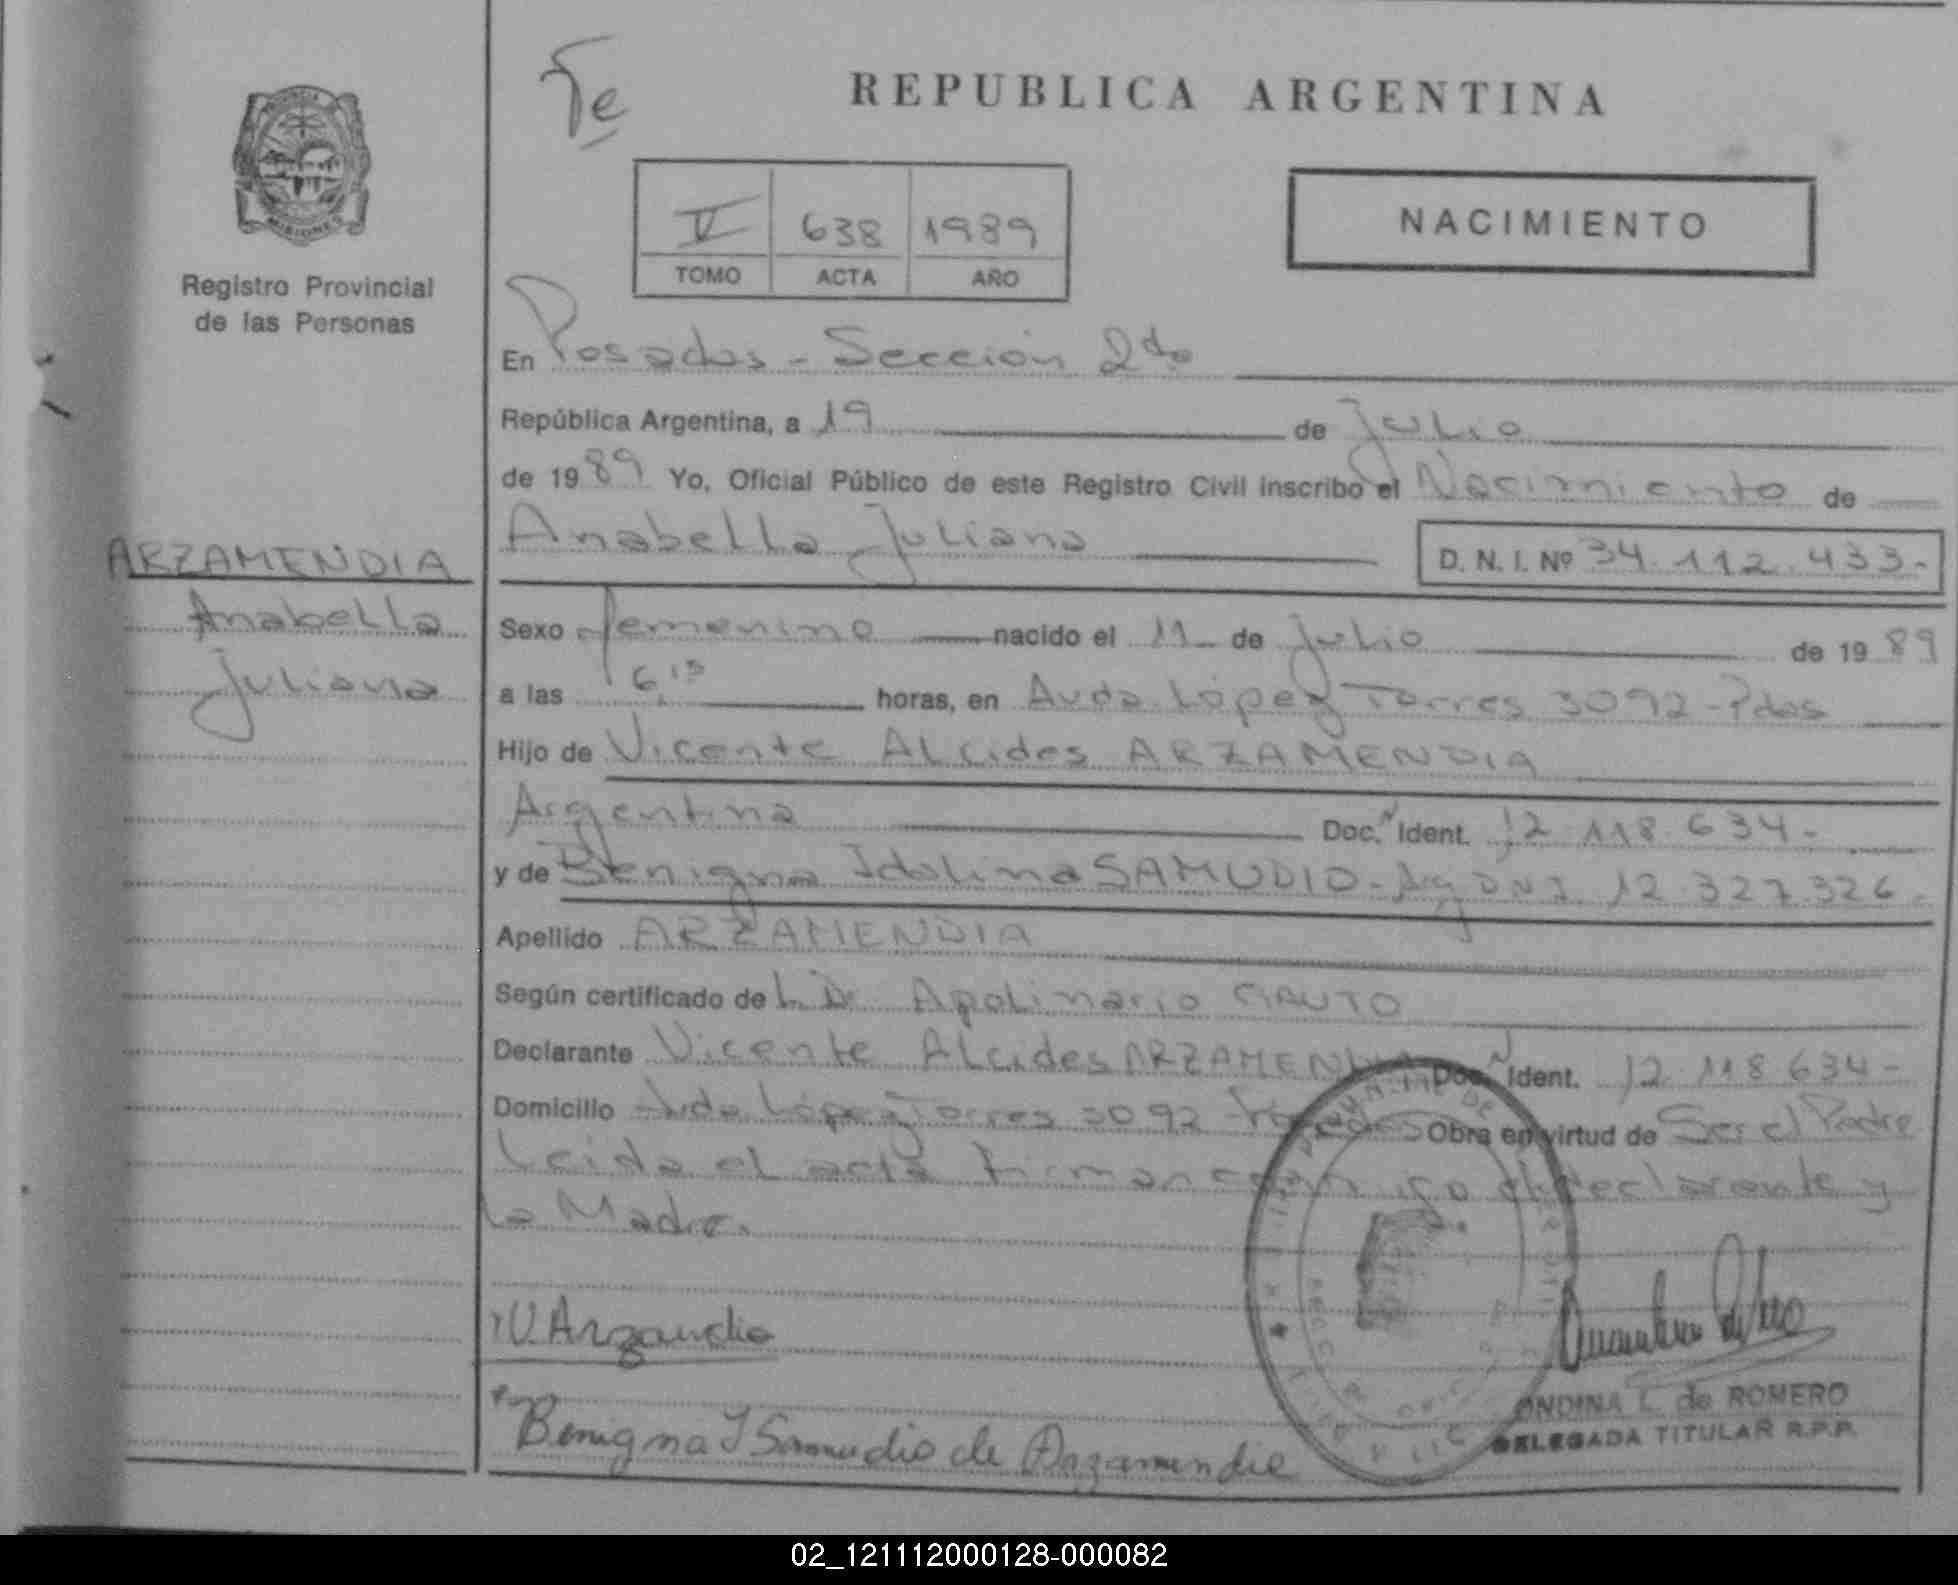 Te
REPUBLICA ARGENTINA
PROVINCIA
MISIONES
Registro Provincial
de las Personas
V 638 1989
TOMO ACTA AÑO
NACIMIENTO
En Posadas - Sección 2da
República Argentina, a 19 de Julio
de 1989 Yo, Oficial Público de este Registro Civil inscribo el Nacimiento de
Anabella Juliana D. N. I. Nº 34.112.433.-
ARZAMENDIA
Anabella
Juliana
Sexo femenino nacido el 11 de Julio de 1989
a las 6,15 horas, en Avda López Torres 3092 - Pdas
Hijo de Vicente Alcides ARZAMENDIA
Argentina Doc. Ident. 12.118.634.-
y de Benigna Idolina SAMUDIO - Arg DNI 12.327.326.
Apellido ARZAMENDIA
Según certificado de L. Dr Apolinario GAUTO
Declarante Vicente Alcides ARZAMENDIA Doc. Ident. 12.118.634-
Domicilio Avda López Torres 3092 Posadas Obra en virtud de Ser el Padre
Leida el acta firman conmigo el declarante y
la Madre.
V. Arzamendia
Benigna I Samudio de Arzamendia
ONDINA L. de ROMERO
DELEGADA TITULAR R.P.P.
02_121112000128-000082